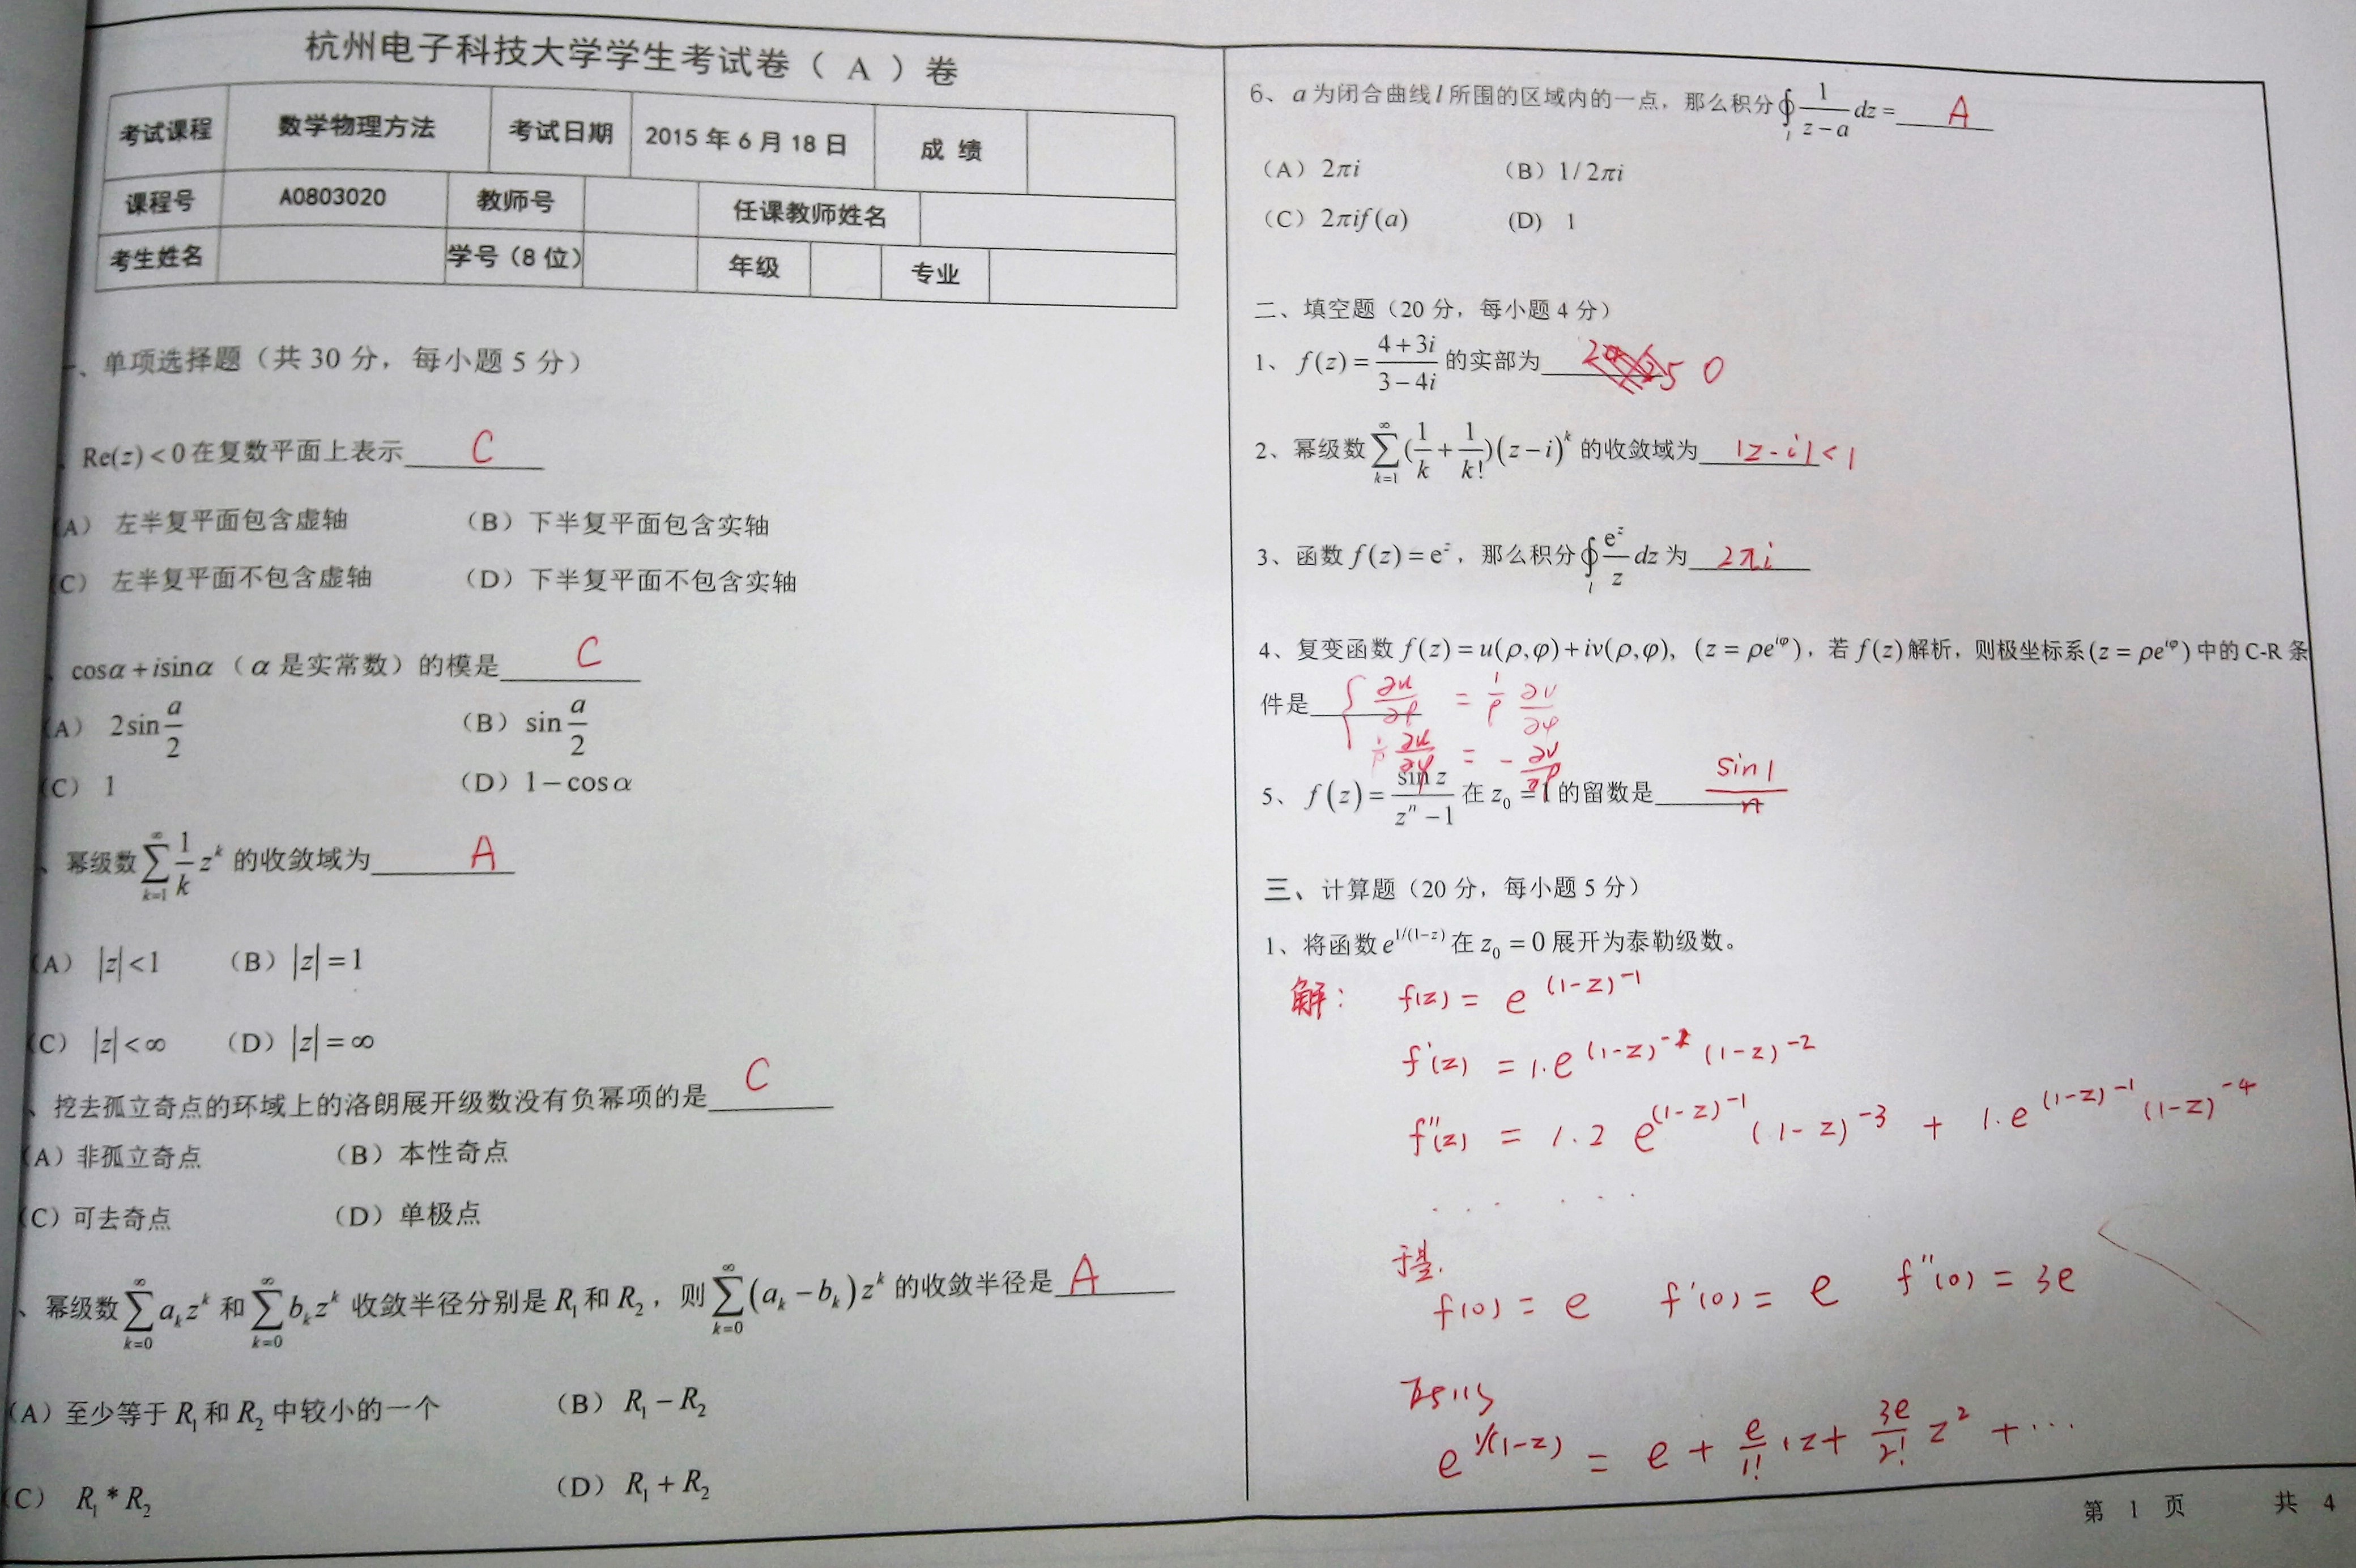 杭州电子科技大学学生考试卷（ A ）卷
考试课程 数学物理方法 考试日期 2015 年 6 月 18 日 成 绩
课程号 A0803020 教师号 任课教师姓名
考生姓名 学号（8 位） 年级 专业
、单项选择题（共 30 分，每小题 5 分）
、Re(z) < 0 在复数平面上表示 C
(A) 左半复平面包含虚轴 （B）下半复平面包含实轴
(C) 左半复平面不包含虚轴 （D）下半复平面不包含实轴
、cosα + isinα（α 是实常数）的模是 C
(A) 2sin a/2 （B）sin a/2
(C) 1 （D）1 − cosα
、幂级数 ∑_{k=1}^{∞} 1/k z^k 的收敛域为 A
(A) |z| < 1 （B）|z| = 1
(C) |z| < ∞ （D）|z| = ∞
、挖去孤立奇点的环域上的洛朗展开级数没有负幂项的是 C
(A）非孤立奇点 （B）本性奇点
(C）可去奇点 （D）单极点
、幂级数 ∑_{k=0}^{∞} a_k z^k 和 ∑_{k=0}^{∞} b_k z^k 收敛半径分别是 R₁ 和 R₂，则 ∑_{k=0}^{∞} (a_k − b_k) z^k 的收敛半径是 A
(A）至少等于 R₁ 和 R₂ 中较小的一个 （B）R₁ − R₂
(C) R₁ * R₂ （D）R₁ + R₂
6、a 为闭合曲线 l 所围的区域内的一点，那么积分 ∮_l 1/(z − a) dz = A
（A）2πi （B）1/ 2πi
（C）2πif(a) (D) 1
二、填空题（20 分，每小题 4 分）
1、f(z) = (4 + 3i)/(3 − 4i) 的实部为 0
2、幂级数 ∑_{k=1}^{∞} (1/k + 1/k!)(z − i)^k 的收敛域为 |z - i| < 1
3、函数 f(z) = e^z，那么积分 ∮_l e^z/z dz 为 2πi
4、复变函数 f(z) = u(ρ,φ) + iv(ρ,φ), (z = ρe^{iφ})，若 f(z) 解析，则极坐标系 (z = ρe^{iφ}) 中的 C-R 条
件是 { ∂u/∂ρ = 1/ρ ∂v/∂φ
1/ρ ∂u/∂φ = - ∂v/∂ρ
5、f(z) = sin z/(z^n − 1) 在 z₀ = 1 的留数是 sin1/n
三、计算题（20 分，每小题 5 分）
1、将函数 e^{1/(1−z)} 在 z₀ = 0 展开为泰勒级数。
解： f(z) = e^{(1-z)^{-1}}
f'(z) = 1·e^{(1-z)^{-1}} (1-z)^{-2}
f''(z) = 1·2 e^{(1-z)^{-1}} (1-z)^{-3} + 1·e^{(1-z)^{-1}} (1-z)^{-4}
· · · · · ·
于是.
f(0) = e f'(0) = e f''(0) = 3e
e^{1/(1-z)} = e + e/1! · z + 3e/2! z² + ···
第 1 页 共 4